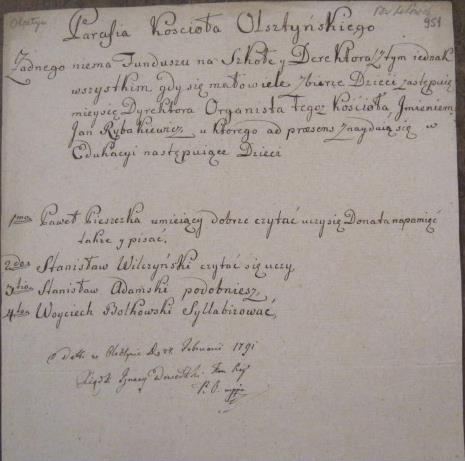 Olsztyn
951
Parafia Kościoła Olsztyńskiego
Żadnego niema Funduszu na Szkołę y Derektora, z tym iednak
wszystkim gdy się mało wiele zbierze Dzieci zastępuie
mieysce Dyrektora Organista tegoż Kościoła Jmieniem
Jan Rybakiewicz, u którego ad præsens znayduią się w
Edukacyi następuiące Dzieci
1mo Paweł Pieszczka umieiący dobrze czytać uczy się Donata na pamięć
także y pisać.
2do Stanisław Wilczyński czytać się uczy
3tio Stanisław Adamski podobniesz
4to Woyciech Bolkowski Syllabizować,
w Olsztynie D. 24 Februarii 1791
Xiądz Ignacy